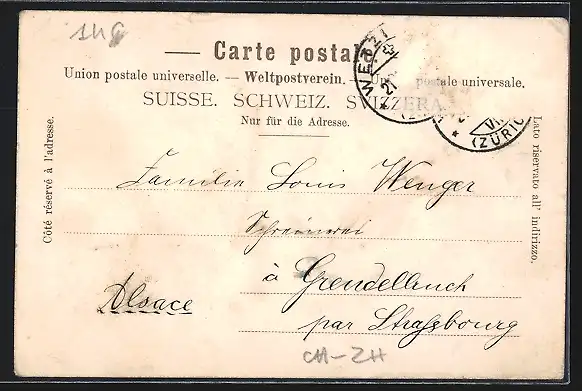 — Carte postale
Union postale universelle. — Weltpostverein. — Un postale universale.
SUISSE. SCHWEIZ. SVIZZERA.
Nur für die Adresse.
Côté réservé à l'adresse.
Lato riservato all' indirizzo.
(ZÜRIC
Familie Louis Wenger
Schreinerei
à Grendelbruch
Alsace
par Strassbourg
CH-ZH